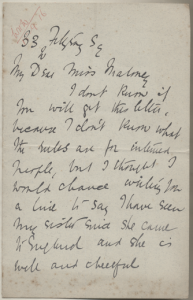 33 Fitzroy Sq
My Dear Miss Maloney
I don't know if
you will get this letter,
because I don't know what
the rules are for interned
people, but I thought I
would chance writing you
a line to say I have seen
my sister since she came
to England and she is
well and cheerful